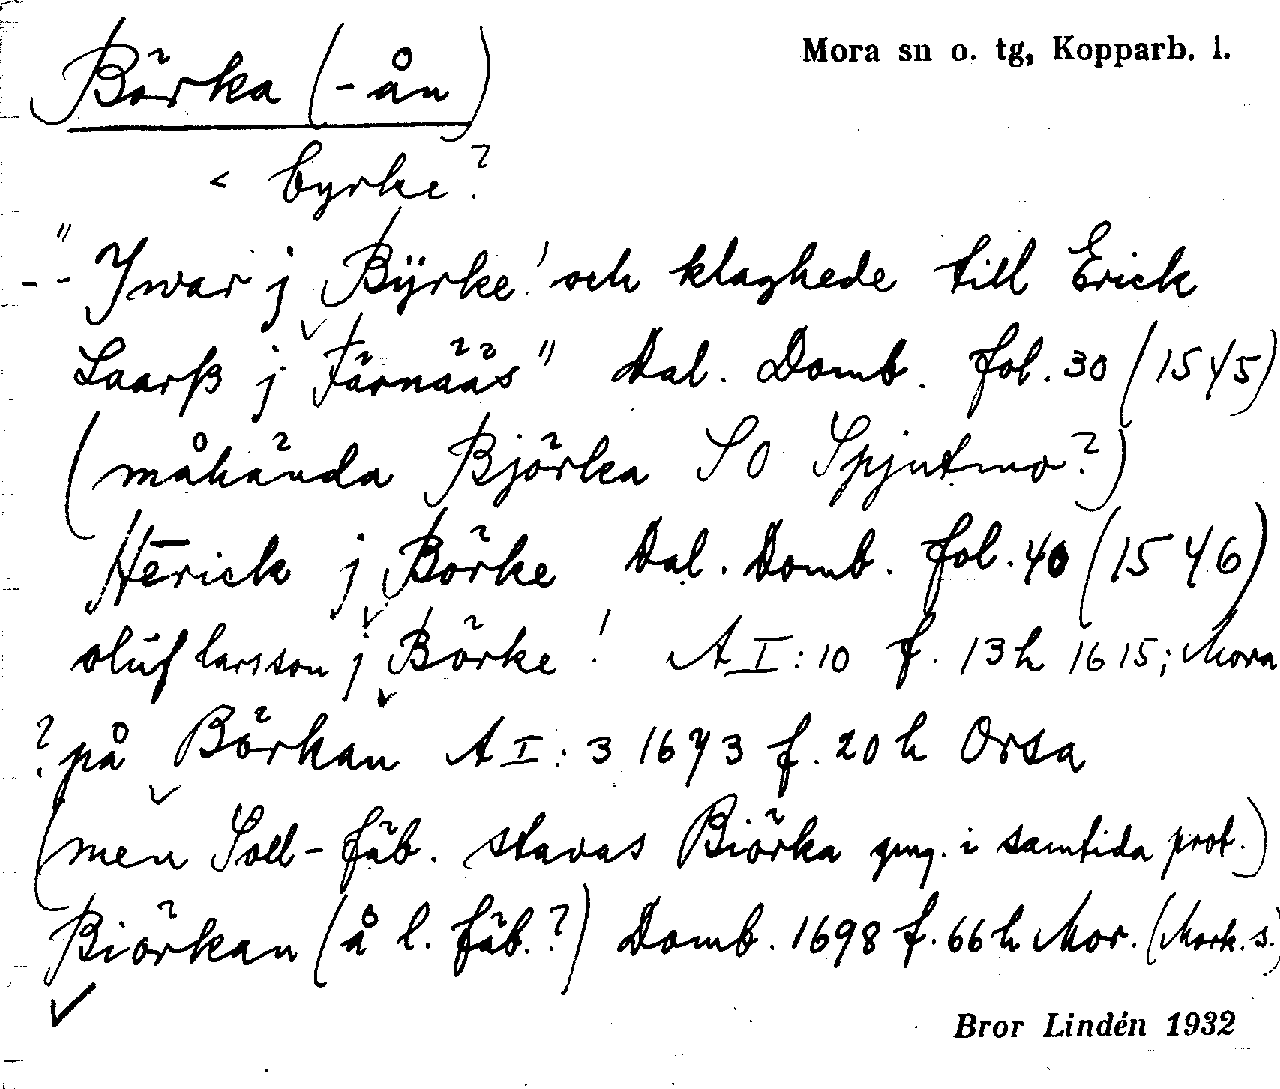 Mora sn o. tg, Kopparb. l.
Börka (-ån)
< byrke?
-- "Ywar j Byrke! och klaghede till Erick
Laarß j Färnääs" Dal. Domb. fol. 30 (1545)
(måhända Björka SO Spjutmo?)
Hērick j Börke Dal. Domb. fol. 40 (1546)
oluf larsson j Börke! A I:10 f. 13h 1615; Mora
? på Börkan A I:3 1673 f. 20h Orsa
(men Soll-fäb. stavas Biörka gng. i samtida prot.)
Biörkan (å l. fäb.?) Domb. 1698 f. 66h Mor. (Mork. s.)
Bror Lindén 1932